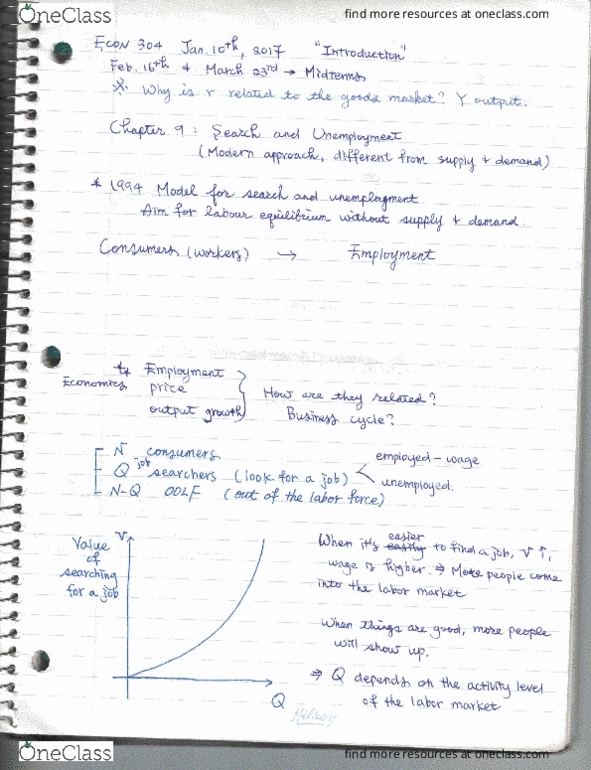 OneClass
find more resources at oneclass.com
ECON 304 Jan. 10th, 2017 "Introduction"
Feb. 16th & March 23rd → Midterms
※ Why is r related to the goods market? Y output.
Chapter 9 : Search and Unemployment
(Modern approach, different from supply & demand)
* 1994 Model for search and unemployment
Aim for labour equilibrium without supply & demand.
Consumers (workers) → Employment
Employment
Economics price
output growth
How are they related?
Business cycle?
N consumers
Q job searchers (look for a job)
employed - wage
unemployed.
N-Q OOLF (out of the labor force)
Value of searching for a job
V
Q
When it's easily easier to find a job, V ↑,
wage is higher. ⇒ More people come
into the labor market
When things are good, more people
will show up.
⇒ Q depends on the activity level
of the labor market
OneClass
find more resources at oneclass.com